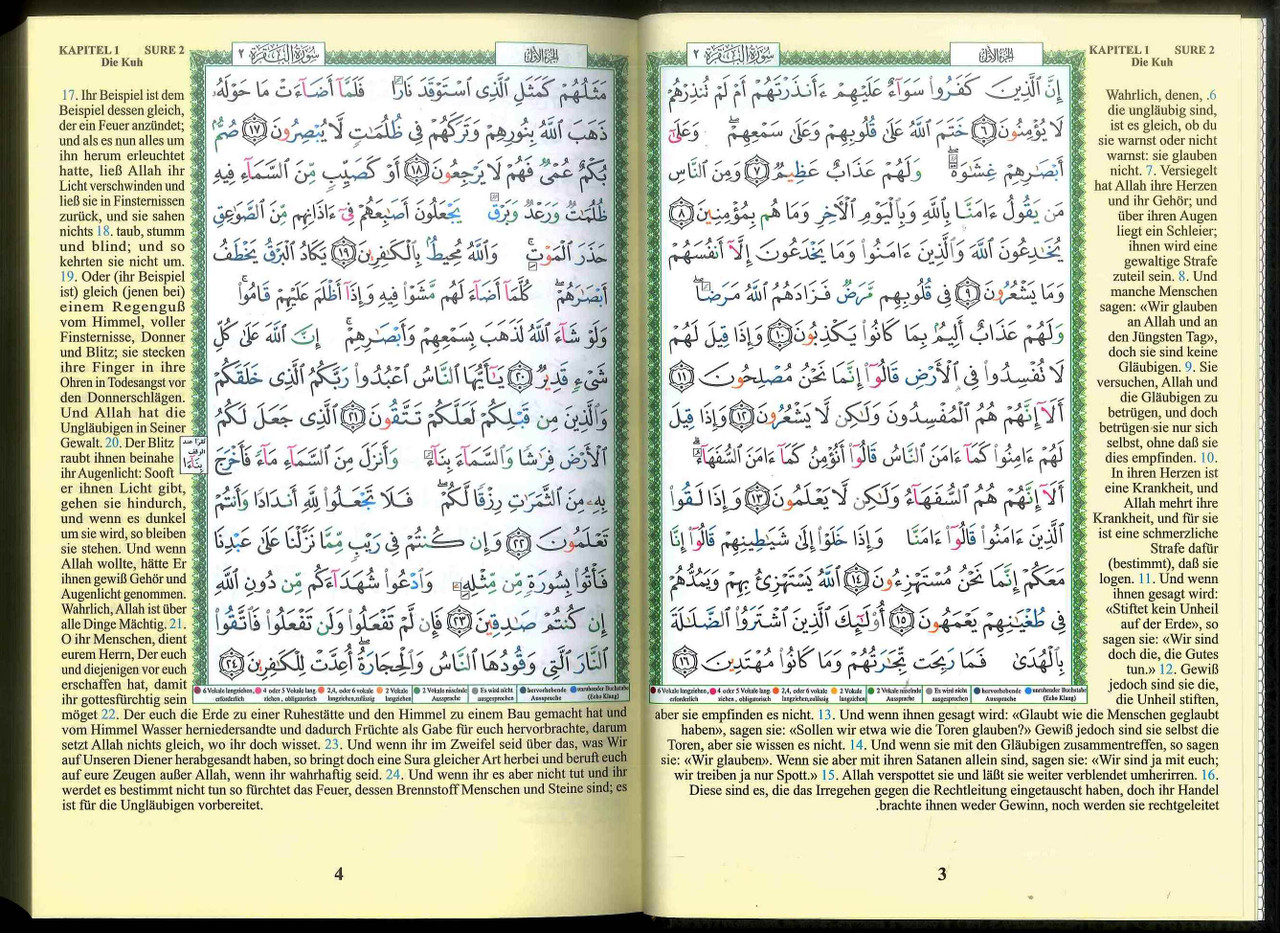 KAPITEL 1 SURE 2
Die Kuh
الجزء الأول
سورة البقرة ٢
إِنَّ الَّذِينَ كَفَرُوا سَوَآءٌ عَلَيْهِمْ ءَأَنذَرْتَهُمْ أَمْ لَمْ تُنذِرْهُمْ
لَا يُؤْمِنُونَ ٦ خَتَمَ اللَّهُ عَلَىٰ قُلُوبِهِمْ وَعَلَىٰ سَمْعِهِمْ ۖ وَعَلَىٰٓ
أَبْصَٰرِهِمْ غِشَٰوَةٌ ۖ وَلَهُمْ عَذَابٌ عَظِيمٌ ٧ وَمِنَ النَّاسِ
مَن يَقُولُ ءَامَنَّا بِاللَّهِ وَبِالْيَوْمِ الْآخِرِ وَمَا هُم بِمُؤْمِنِينَ ٨
يُخَٰدِعُونَ اللَّهَ وَالَّذِينَ ءَامَنُوا وَمَا يَخْدَعُونَ إِلَّآ أَنفُسَهُمْ
وَمَا يَشْعُرُونَ ٩ فِي قُلُوبِهِم مَّرَضٌ فَزَادَهُمُ اللَّهُ مَرَضًا ۖ
وَلَهُمْ عَذَابٌ أَلِيمٌۢ بِمَا كَانُوا يَكْذِبُونَ ١٠ وَإِذَا قِيلَ لَهُمْ
لَا تُفْسِدُوا فِي الْأَرْضِ قَالُوٓا إِنَّمَا نَحْنُ مُصْلِحُونَ ١١
أَلَآ إِنَّهُمْ هُمُ الْمُفْسِدُونَ وَلَٰكِن لَّا يَشْعُرُونَ ١٢ وَإِذَا قِيلَ
لَهُمْ ءَامِنُوا كَمَآ ءَامَنَ النَّاسُ قَالُوٓا أَنُؤْمِنُ كَمَآ ءَامَنَ السُّفَهَآءُ ۗ
أَلَآ إِنَّهُمْ هُمُ السُّفَهَآءُ وَلَٰكِن لَّا يَعْلَمُونَ ١٣ وَإِذَا لَقُوا
الَّذِينَ ءَامَنُوا قَالُوٓا ءَامَنَّا وَإِذَا خَلَوْا إِلَىٰ شَيَٰطِينِهِمْ قَالُوٓا إِنَّا
مَعَكُمْ إِنَّمَا نَحْنُ مُسْتَهْزِءُونَ ١٤ اللَّهُ يَسْتَهْزِئُ بِهِمْ وَيَمُدُّهُمْ
فِي طُغْيَٰنِهِمْ يَعْمَهُونَ ١٥ أُولَٰٓئِكَ الَّذِينَ اشْتَرَوُا الضَّلَٰلَةَ
بِالْهُدَىٰ فَمَا رَبِحَت تِّجَٰرَتُهُمْ وَمَا كَانُوا مُهْتَدِينَ ١٦
Wahrlich, denen, .6
die ungläubig sind,
ist es gleich, ob du
sie warnst oder nicht
warnst: sie glauben
nicht. 7. Versiegelt
hat Allah ihre Herzen
und ihr Gehör; und
über ihren Augen
liegt ein Schleier;
ihnen wird eine
gewaltige Strafe
zuteil sein. 8. Und
manche Menschen
sagen: «Wir glauben
an Allah und an
den Jüngsten Tag»,
doch sie sind keine
Gläubigen. 9. Sie
versuchen, Allah und
die Gläubigen zu
betrügen, und doch
betrügen sie nur sich
selbst, ohne daß sie
dies empfinden. 10.
In ihren Herzen ist
eine Krankheit, und
Allah mehrt ihre
Krankheit, und für sie
ist eine schmerzliche
Strafe dafür
(bestimmt), daß sie
logen. 11. Und wenn
ihnen gesagt wird:
«Stiftet kein Unheil
auf der Erde», so
sagen sie: «Wir sind
doch die, die Gutes
tun.» 12. Gewiß
jedoch sind sie die,
die Unheil stiften,
6 Vokale langziehen, erforderlich
4 oder 5 Vokale lang ziehen, obligatorisch
2,4, oder 6 vokale langziehen,zulässig
2 Vokale langziehen
2 Vokale näselnde Aussprache
Es wird nicht ausgesprochen
hervorhebende Aussprache
unruhender Buchstabe (Echo Klang)
aber sie empfinden es nicht. 13. Und wenn ihnen gesagt wird: «Glaubt wie die Menschen geglaubt
haben», sagen sie: «Sollen wir etwa wie die Toren glauben?» Gewiß jedoch sind sie selbst die
Toren, aber sie wissen es nicht. 14. Und wenn sie mit den Gläubigen zusammentreffen, so sagen
sie: «Wir glauben». Wenn sie aber mit ihren Satanen allein sind, sagen sie: «Wir sind ja mit euch;
wir treiben ja nur Spott.» 15. Allah verspottet sie und läßt sie weiter verblendet umherirren. 16.
Diese sind es, die das Irregehen gegen die Rechtleitung eingetauscht haben, doch ihr Handel
.brachte ihnen weder Gewinn, noch werden sie rechtgeleitet
3
KAPITEL 1 SURE 2
Die Kuh
الجزء الأول
سورة البقرة ٢
مَثَلُهُمْ كَمَثَلِ الَّذِي اسْتَوْقَدَ نَارًا فَلَمَّآ أَضَآءَتْ مَا حَوْلَهُۥ
ذَهَبَ اللَّهُ بِنُورِهِمْ وَتَرَكَهُمْ فِي ظُلُمَٰتٍ لَّا يُبْصِرُونَ ١٧ صُمٌّۢ
بُكْمٌ عُمْيٌ فَهُمْ لَا يَرْجِعُونَ ١٨ أَوْ كَصَيِّبٍ مِّنَ السَّمَآءِ فِيهِ
ظُلُمَٰتٌ وَرَعْدٌ وَبَرْقٌ يَجْعَلُونَ أَصَٰبِعَهُمْ فِيٓ ءَاذَانِهِم مِّنَ الصَّوَٰعِقِ
حَذَرَ الْمَوْتِ ۚ وَاللَّهُ مُحِيطٌۢ بِالْكَٰفِرِينَ ١٩ يَكَادُ الْبَرْقُ يَخْطَفُ
أَبْصَٰرَهُمْ ۖ كُلَّمَآ أَضَآءَ لَهُم مَّشَوْا فِيهِ وَإِذَآ أَظْلَمَ عَلَيْهِمْ قَامُوا ۚ
وَلَوْ شَآءَ اللَّهُ لَذَهَبَ بِسَمْعِهِمْ وَأَبْصَٰرِهِمْ ۚ إِنَّ اللَّهَ عَلَىٰ كُلِّ
شَيْءٍ قَدِيرٌ ٢٠ يَٰٓأَيُّهَا النَّاسُ اعْبُدُوا رَبَّكُمُ الَّذِي خَلَقَكُمْ
وَالَّذِينَ مِن قَبْلِكُمْ لَعَلَّكُمْ تَتَّقُونَ ٢١ الَّذِي جَعَلَ لَكُمُ
الْأَرْضَ فِرَٰشًا وَالسَّمَآءَ بِنَآءً وَأَنزَلَ مِنَ السَّمَآءِ مَآءً فَأَخْرَجَ
بِهِۦ مِنَ الثَّمَرَٰتِ رِزْقًا لَّكُمْ ۖ فَلَا تَجْعَلُوا لِلَّهِ أَندَادًا وَأَنتُمْ
تَعْلَمُونَ ٢٢ وَإِن كُنتُمْ فِي رَيْبٍ مِّمَّا نَزَّلْنَا عَلَىٰ عَبْدِنَا
فَأْتُوا بِسُورَةٍ مِّن مِّثْلِهِۦ وَادْعُوا شُهَدَآءَكُم مِّن دُونِ اللَّهِ
إِن كُنتُمْ صَٰدِقِينَ ٢٣ فَإِن لَّمْ تَفْعَلُوا وَلَن تَفْعَلُوا فَاتَّقُوا
النَّارَ الَّتِي وَقُودُهَا النَّاسُ وَالْحِجَارَةُ ۖ أُعِدَّتْ لِلْكَٰفِرِينَ ٢٤
17. Ihr Beispiel ist dem
Beispiel dessen gleich,
der ein Feuer anzündet;
und als es nun alles um
ihn herum erleuchtet
hatte, ließ Allah ihr
Licht verschwinden und
ließ sie in Finsternissen
zurück, und sie sahen
nichts 18. taub, stumm
und blind; und so
kehrten sie nicht um.
19. Oder (ihr Beispiel
ist) gleich (jenen bei)
einem Regenguß
vom Himmel, voller
Finsternisse, Donner
und Blitz; sie stecken
ihre Finger in ihre
Ohren in Todesangst vor
den Donnerschlägen.
Und Allah hat die
Ungläubigen in Seiner
Gewalt. 20. Der Blitz
raubt ihnen beinahe
ihr Augenlicht: Sooft
er ihnen Licht gibt,
gehen sie hindurch,
und wenn es dunkel
um sie wird, so bleiben
sie stehen. Und wenn
Allah wollte, hätte Er
ihnen gewiß Gehör und
Augenlicht genommen.
Wahrlich, Allah ist über
alle Dinge Mächtig. 21.
O ihr Menschen, dient
eurem Herrn, Der euch
und diejenigen vor euch
erschaffen hat, damit
ihr gottesfürchtig sein
6 Vokale langziehen, erforderlich
4 oder 5 Vokale lang ziehen, obligatorisch
2,4, oder 6 vokale langziehen,zulässig
2 Vokale langziehen
2 Vokale näselnde Aussprache
Es wird nicht ausgesprochen
hervorhebende Aussprache
unruhender Buchstabe (Echo Klang)
möget 22. Der euch die Erde zu einer Ruhestätte und den Himmel zu einem Bau gemacht hat und
vom Himmel Wasser herniedersandte und dadurch Früchte als Gabe für euch hervorbrachte, darum
setzt Allah nichts gleich, wo ihr doch wisset. 23. Und wenn ihr im Zweifel seid über das, was Wir
auf Unseren Diener herabgesandt haben, so bringt doch eine Sura gleicher Art herbei und beruft euch
auf eure Zeugen außer Allah, wenn ihr wahrhaftig seid. 24. Und wenn ihr es aber nicht tut und ihr
werdet es bestimmt nicht tun so fürchtet das Feuer, dessen Brennstoff Menschen und Steine sind; es
ist für die Ungläubigen vorbereitet.
4